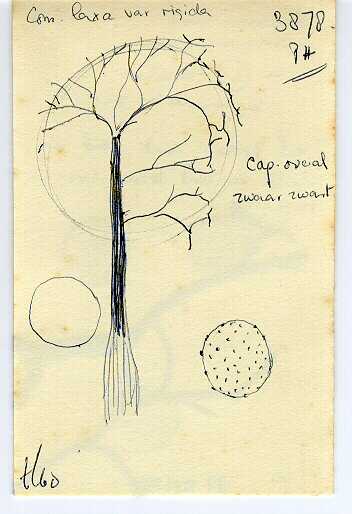 Com. laxa var rigida
3878.
Cap. overal
zwaar zwart